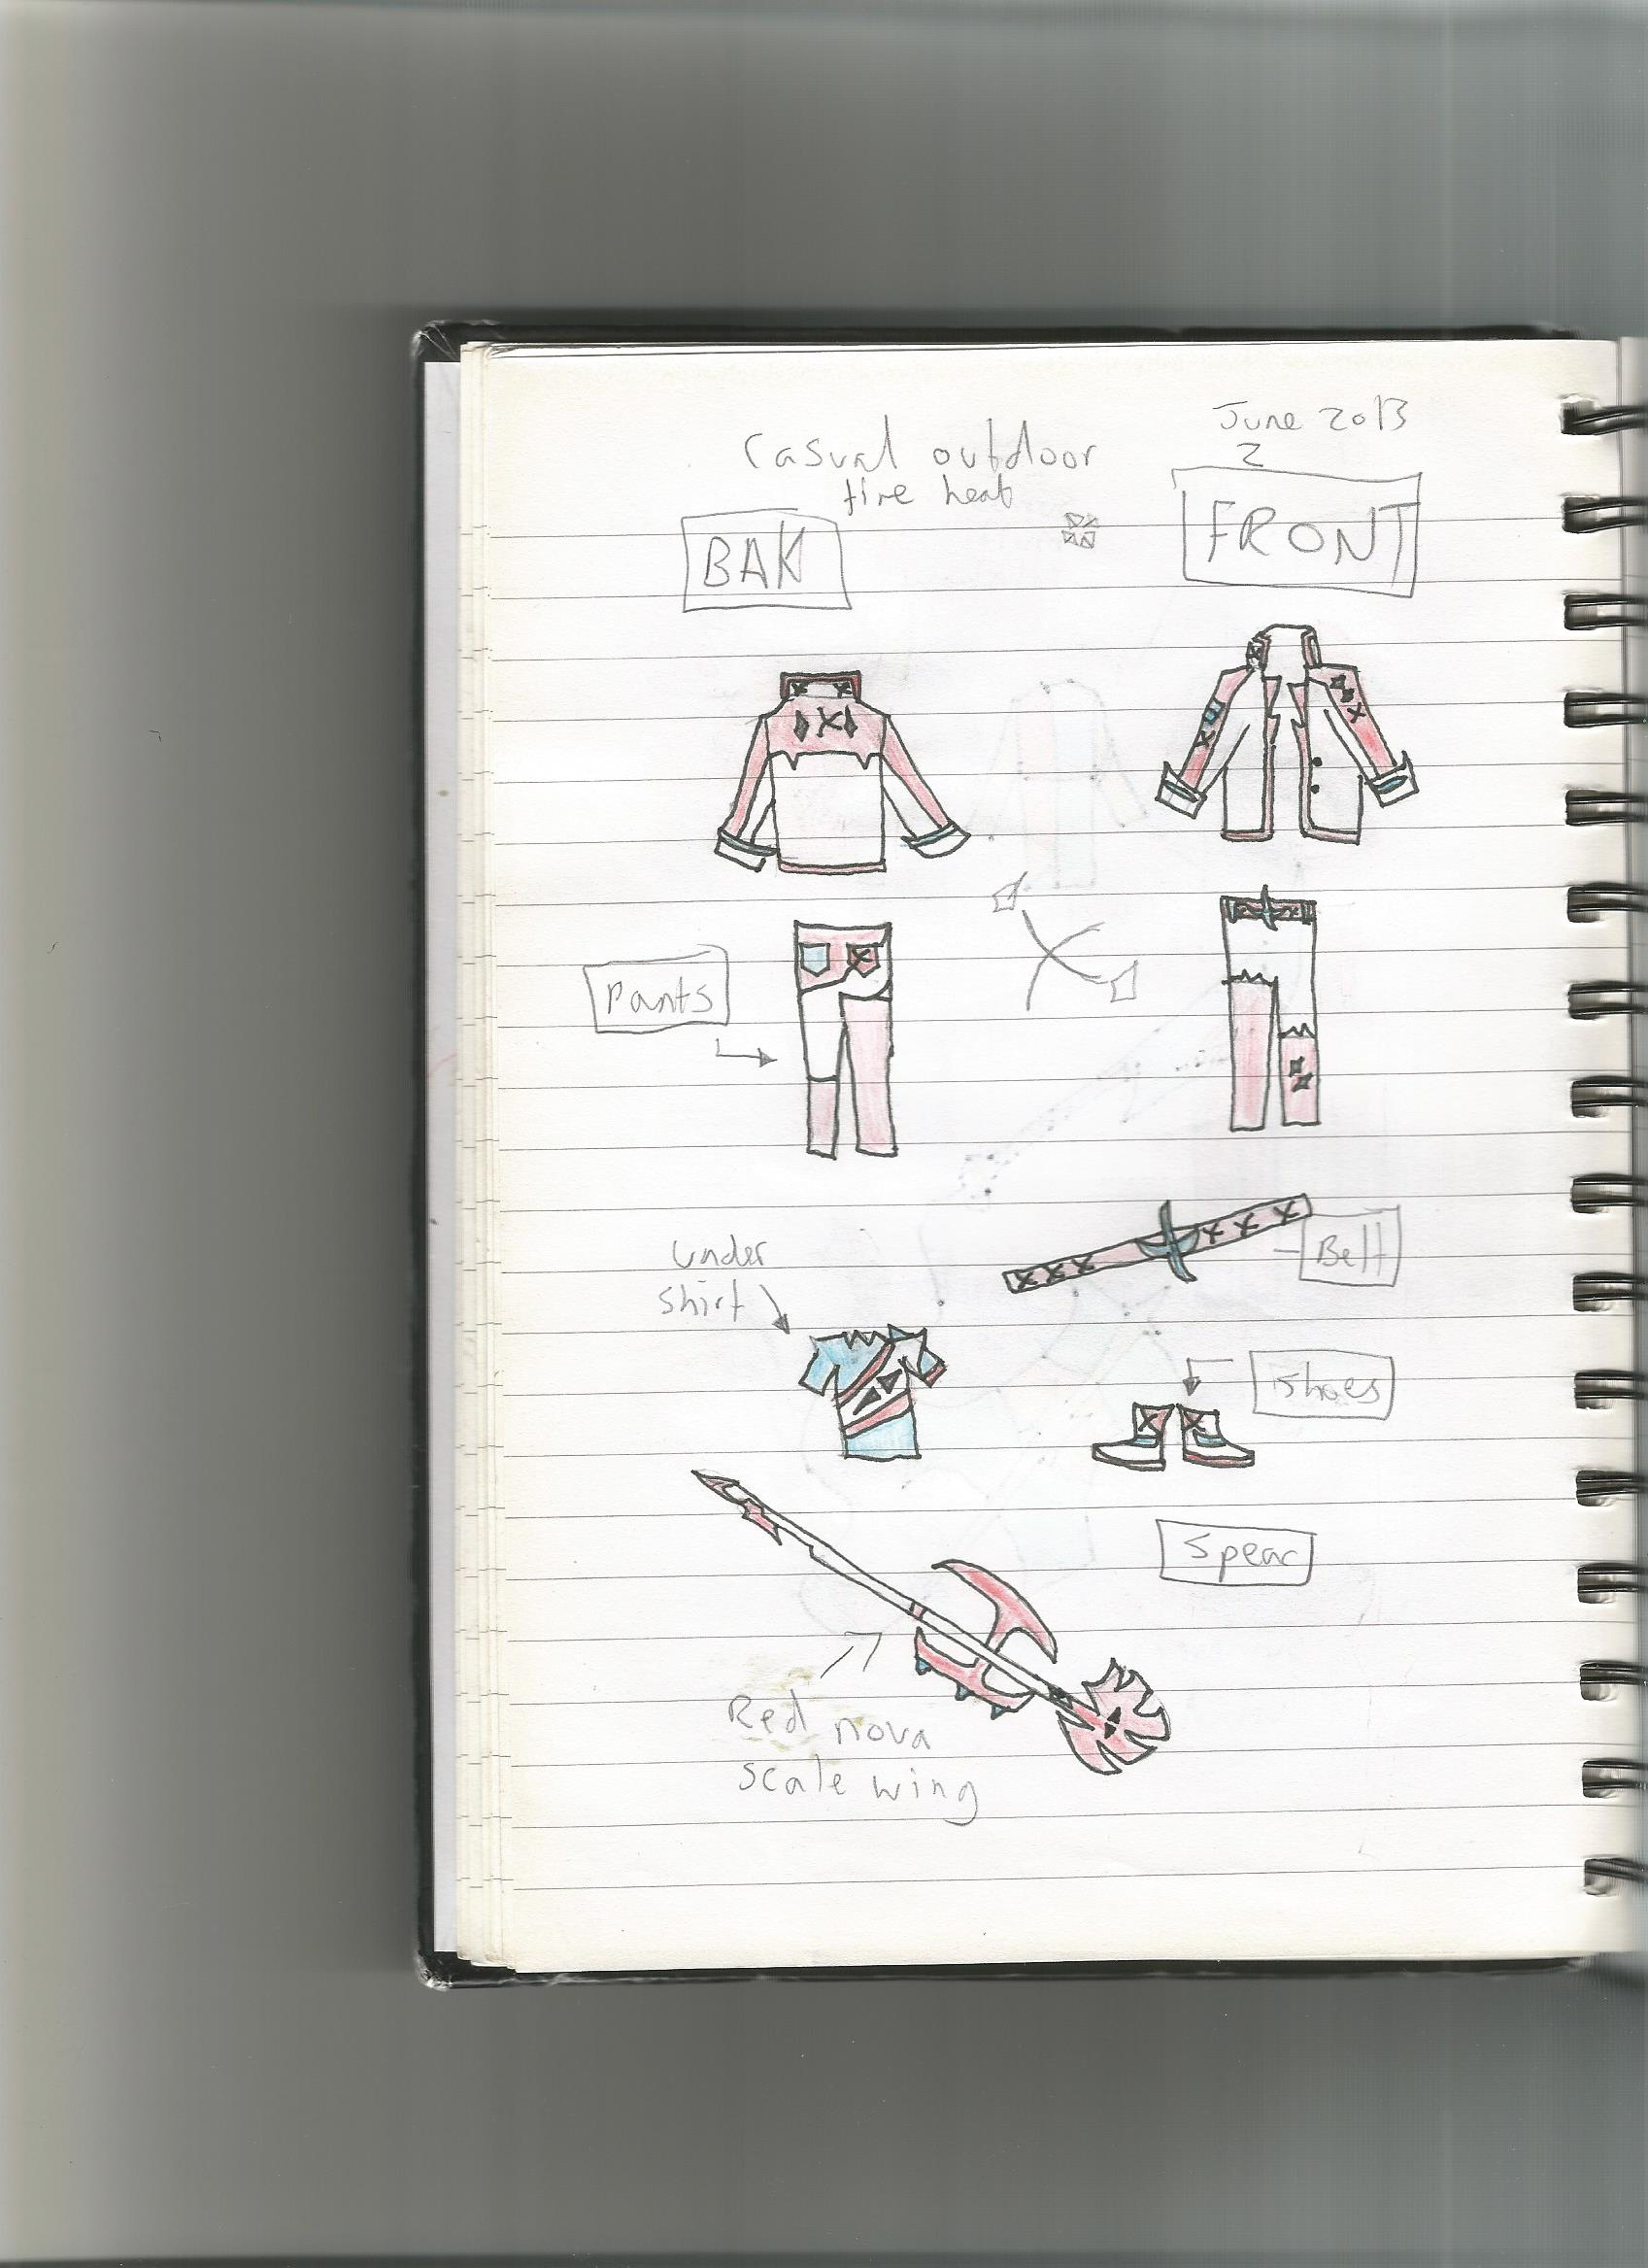 June 2013
2
Casual outdoor
fire heat
BAK
FRONT
Pants
Belt
under
shirt
shoes
Spear
Red nova
scale wing